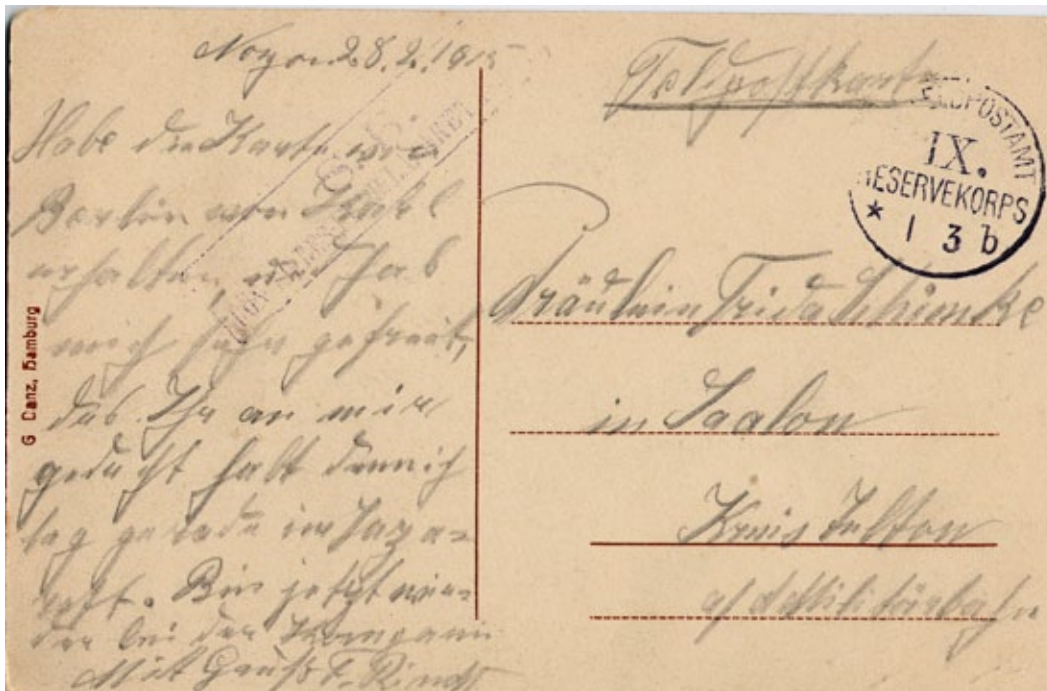 Noyon 28.2.1915
Habe die Karte von
Berlin von Karl
erhalten und hab
mich sehr gefreut,
das Ihr an mir
gedacht habt denn ich
lag gerade im Laza-
rett. Bin jetzt wie-
der bei der Kompani
Mit Gruß F.
Feldpostkarte
FELDPOSTAMT
IX.
RESERVEKORPS
* 1 3 b
S.B.
Fräulein Frida Schimke
in Saalow
Kreis Teltow
a/d Militärbahn
G Danz, Hamburg